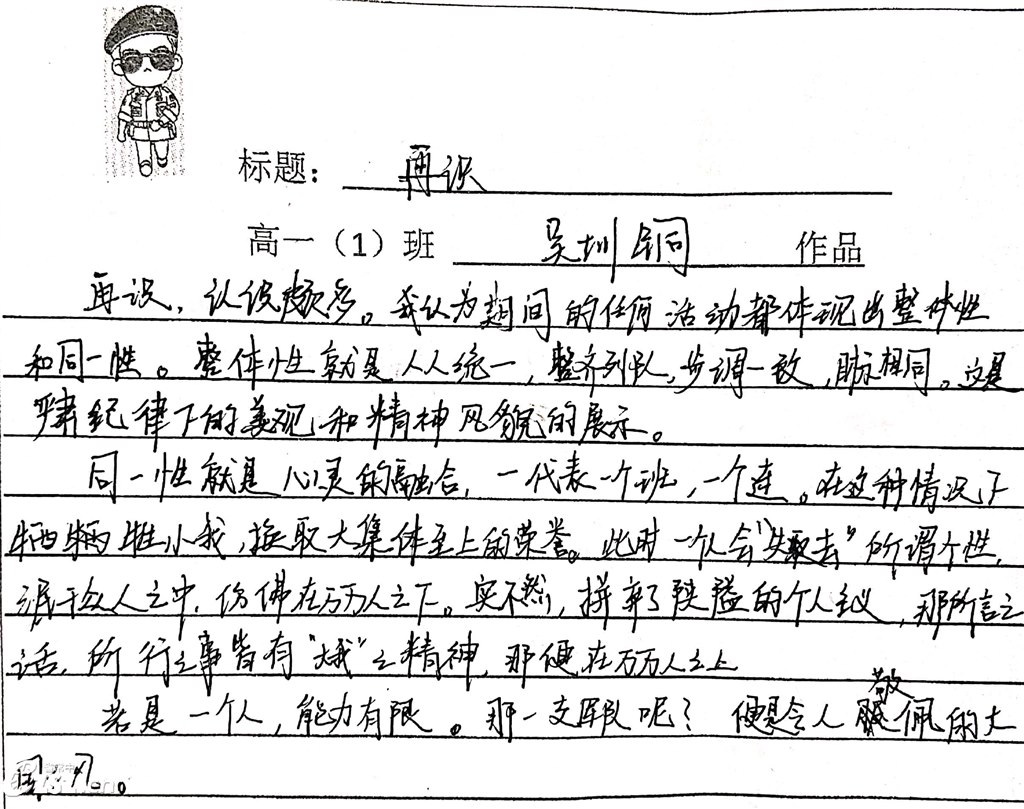 标题： 再识
高一（1）班 吴圳铜 作品
再识，认识颇多。我认为期间的任何活动都体现出整体性
和同一性。整体性就是人人统一，整齐列队，步调一致，脚标相同。这是
严肃纪律下的美观和精神风貌的展示。
同一性就是心灵的融合，一代表一个班，一个连。在这种情况下
牺牲小我，换取大集体至上的荣誉。此时一个人会“失去”所谓个性，
泯于众人之中，仿佛在万万人之下。实不然，摒弃了狭隘的个人主义，那所言之
话，所行之事皆有“大我”之精神，那便在万万人之上
若是一个人，能力有限。那一支军队呢？便是令人敬佩的大
国